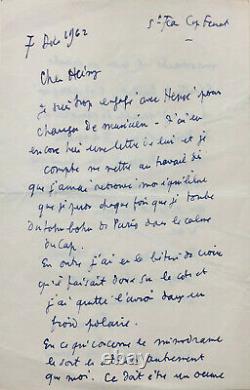 7 Dec 1962
St Jean Cap Ferrat
Cher Heinz
Je suis trop engagé avec Henze pour
changer de musicien. J'ai eu
encore hier une lettre de lui et je
compte me mettre au travail dès
que j'aurai retrouvé mon équilibre
que je perds chaque fois que je tombe
du tohu bohu de Paris dans le calme
du Cap.
En outre j'ai eu la bêtise de croire
qu'il faisait doux sur la côte et
j'ai quitté l'avion dans un
froid polaire.
En ce qui concerne le mimodrame
le sort en décide autrement
que moi. Ce doit être un